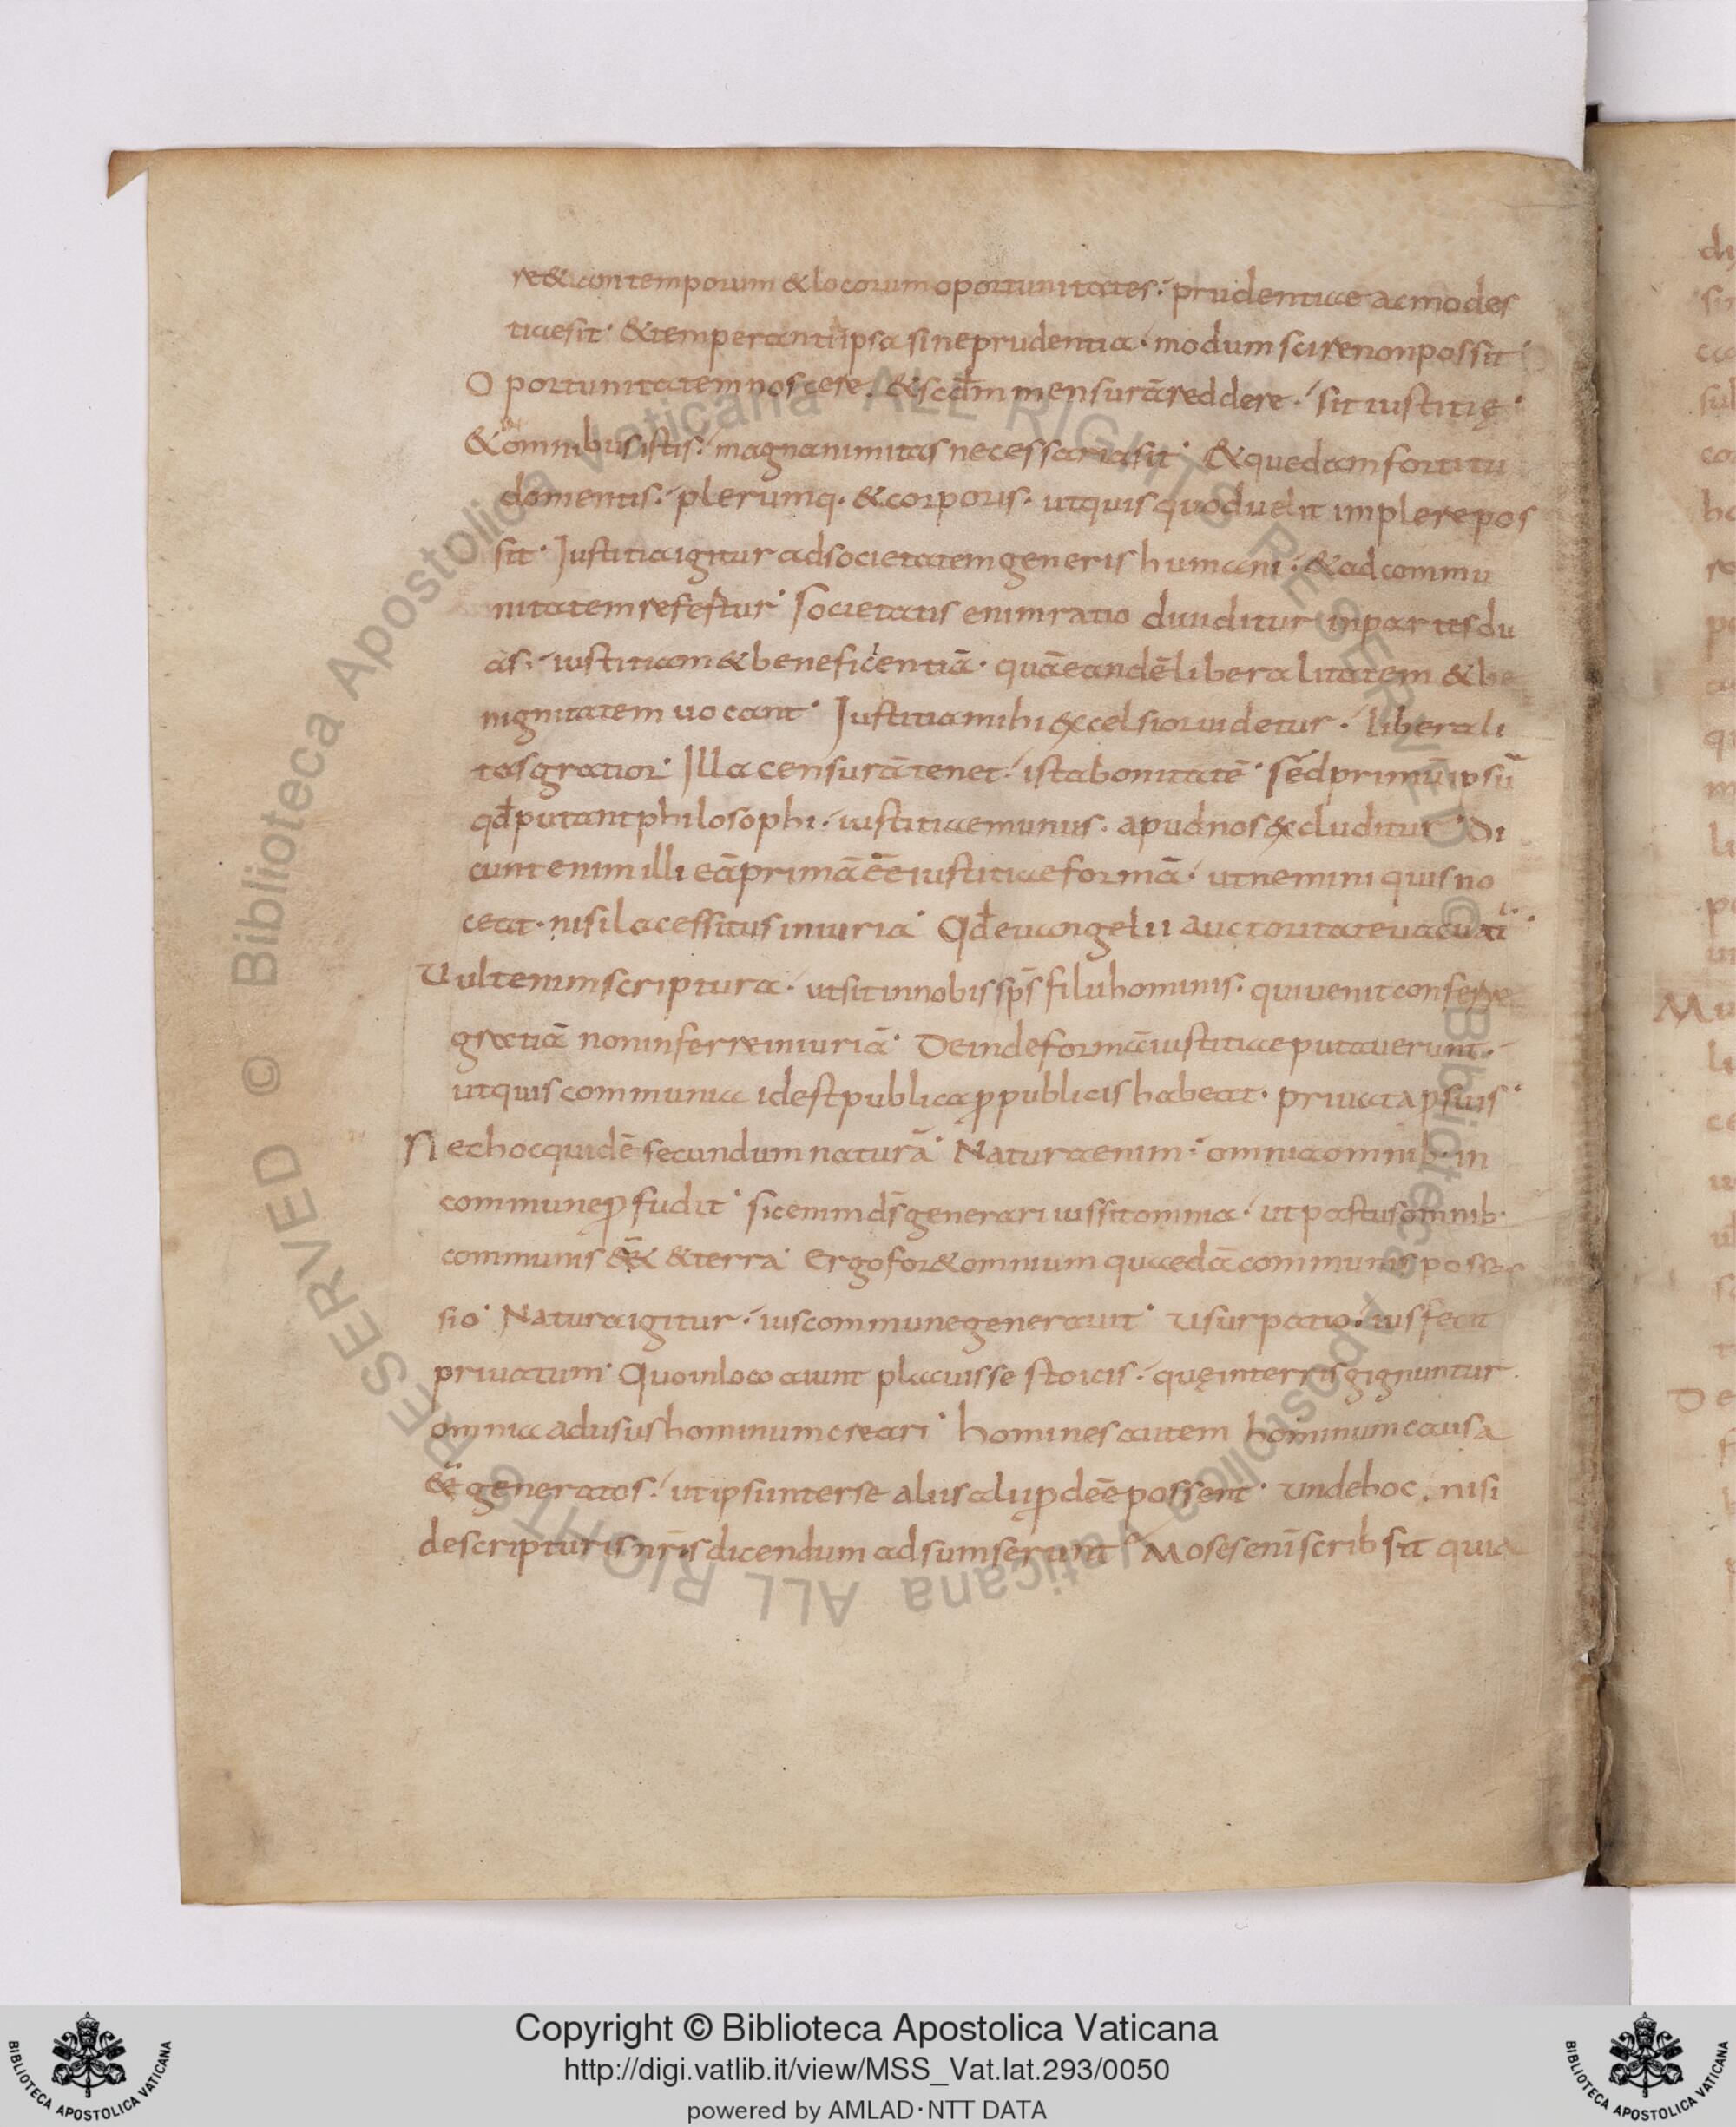 re & iam temporum & locorum oportunitates. prudentiae ac modes
tiae sit. & temperantia ipsa sine prudentia. modum scire non possit.
Oportunitatem noscere. & scdm mensurā reddere. sit iustitię.
& in omnibus istis. magnanimitas necessaria sit. & quedam fortitu
do mentis. plerumq. & corporis. ut quis quod uelit implere pos
sit. Iustitia igitur ad societatem generis humani. & ad commu
nitatem refertur. Societatis enim ratio diuiditur in partes du
as. iustitiam & beneficentiā. quā eandē liberalitatem & be
nignitatem uocant. Iustitia mihi excelsior uidetur. liberali
tas gratior. Illa censurā tenet. ista bonitatē. Sed primū ipsū
qd putant philosophi. iustitiae munus. apud nos excluditur. Di
cunt enim illi eā primā ēē iustitiae formā. ut nemini quis no
ceat. nisi lacessitus iniuria. Qd euangelii auctoritate uacuat.
Uult enim scriptura. ut sit in nobis sps filii hominis. qui uenit conferre
gratiā non inferre iniuriā. Deinde formā iustitiae putauerunt.
ut quis communia id est publica p publicis habeat. priuata p suis.
Nec hoc quidē secundum naturā. Natura enim. omnia omnib. in
commune pfudit. sic enim ds generari iussit omnia. ut pastus omnib.
communis ēēt & terra. Ergo for& omnium quaedā communis posses
sio. Natura igitur. ius commune generauit. usurpatio. ius fecit
priuatum. Quo in loco aiunt placuisse stoicis. quę in terris gignuntur.
omnia ad usus hominum creari. homines autem hominum causa
ēē generatos. ut ipsi inter se aliis alii pdēē possent. Unde hoc. nisi
de scripturis nris dicendum adsumserunt. Moses eni scribsit quia
di
Copyright © Biblioteca Apostolica Vaticana
http://digi.vatlib.it/view/MSS_Vat.lat.293/0050
powered by AMLAD·NTT DATA
BIBLIOTECA APOSTOLICA VATICANA
BIBLIOTECA APOSTOLICA VATICANA